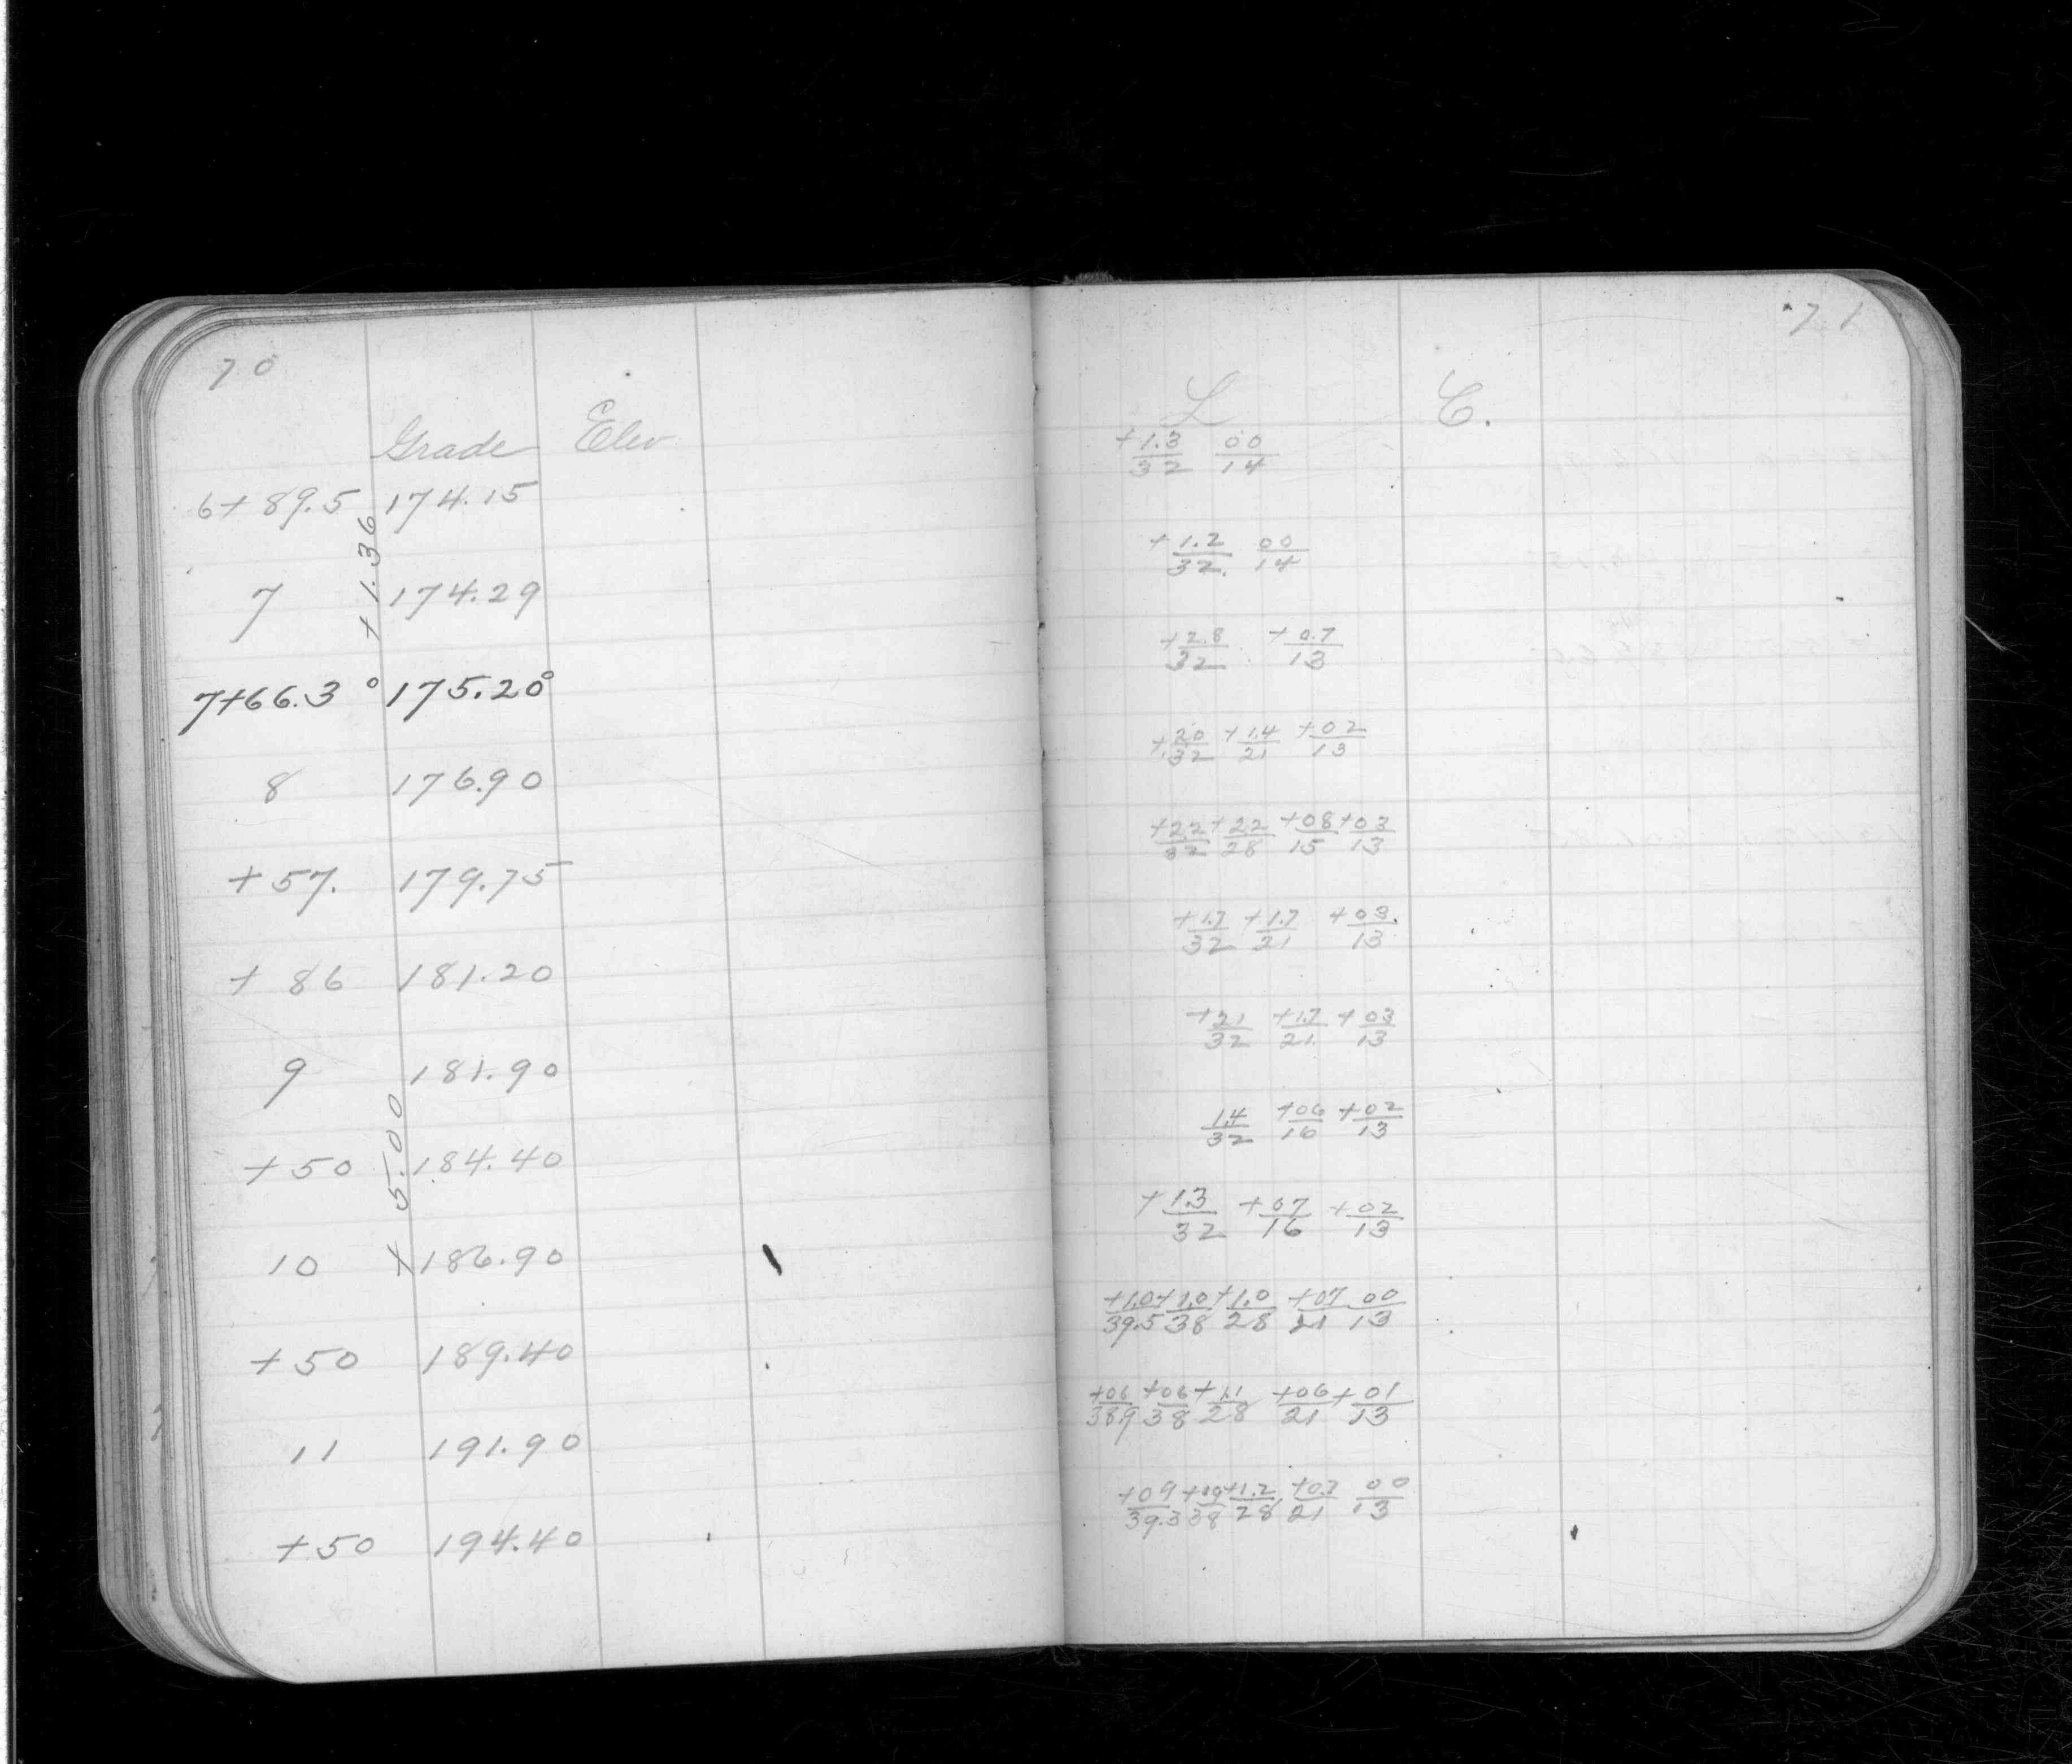 70
Grade Elev
6+89.5 174.15
+1.36
7 174.29
7+66.3° 175.20°
8 176.90
+57. 179.75
+86 181.20
9 181.90
+5.00
+50 184.40
10 186.90
+50 189.40
11 191.90
+50 194.40
71
L C.
+1.3/32 00/14
+1.2/32. 00/14
+2.8/32 +0.7/13
+20/32 +1.4/21 +02/13
+2.2/32 +2.2/28 +08/15 +03/13
+1.7/32 +1.7/21 +03./13
+21/32 +1.7/21 +03/13
1.4/32 +06/16 +02/13
+1.3/32 +07/16 +02/13
+1.0/39.5 +1.0/38 +1.0/28 +07/21 00/13
+06/38.9 +06/38 +1.1/28 +06/21 +01/13
+09/39.3 +09/38 +1.2/28 +0.7/21 00/13